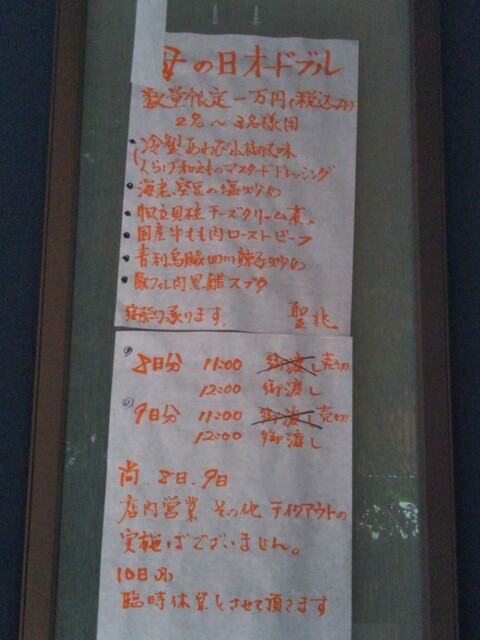 母の日オードブル
数量限定一万円(税込み)
2名〜3名様用
・冷製あわび山椒風味
くらげ和えものマスタードドレッシング
・海老、空豆の塩炒め
・帆立貝柱チーズクリーム煮。
・国産牛もも肉ローストビーフ
・青利烏賊四川辣子炒め
・豚フィレ肉黒醋スブタ
承ります。 聖兆
8日分 11:00 御渡し 売切
12:00 御渡し
9日分 11:00 御渡し 売切
12:00 御渡し
尚、8日、9日
店内営業 その他 テイクアウトの
実施はございません。
10日(月)
臨時休業とさせて頂きます